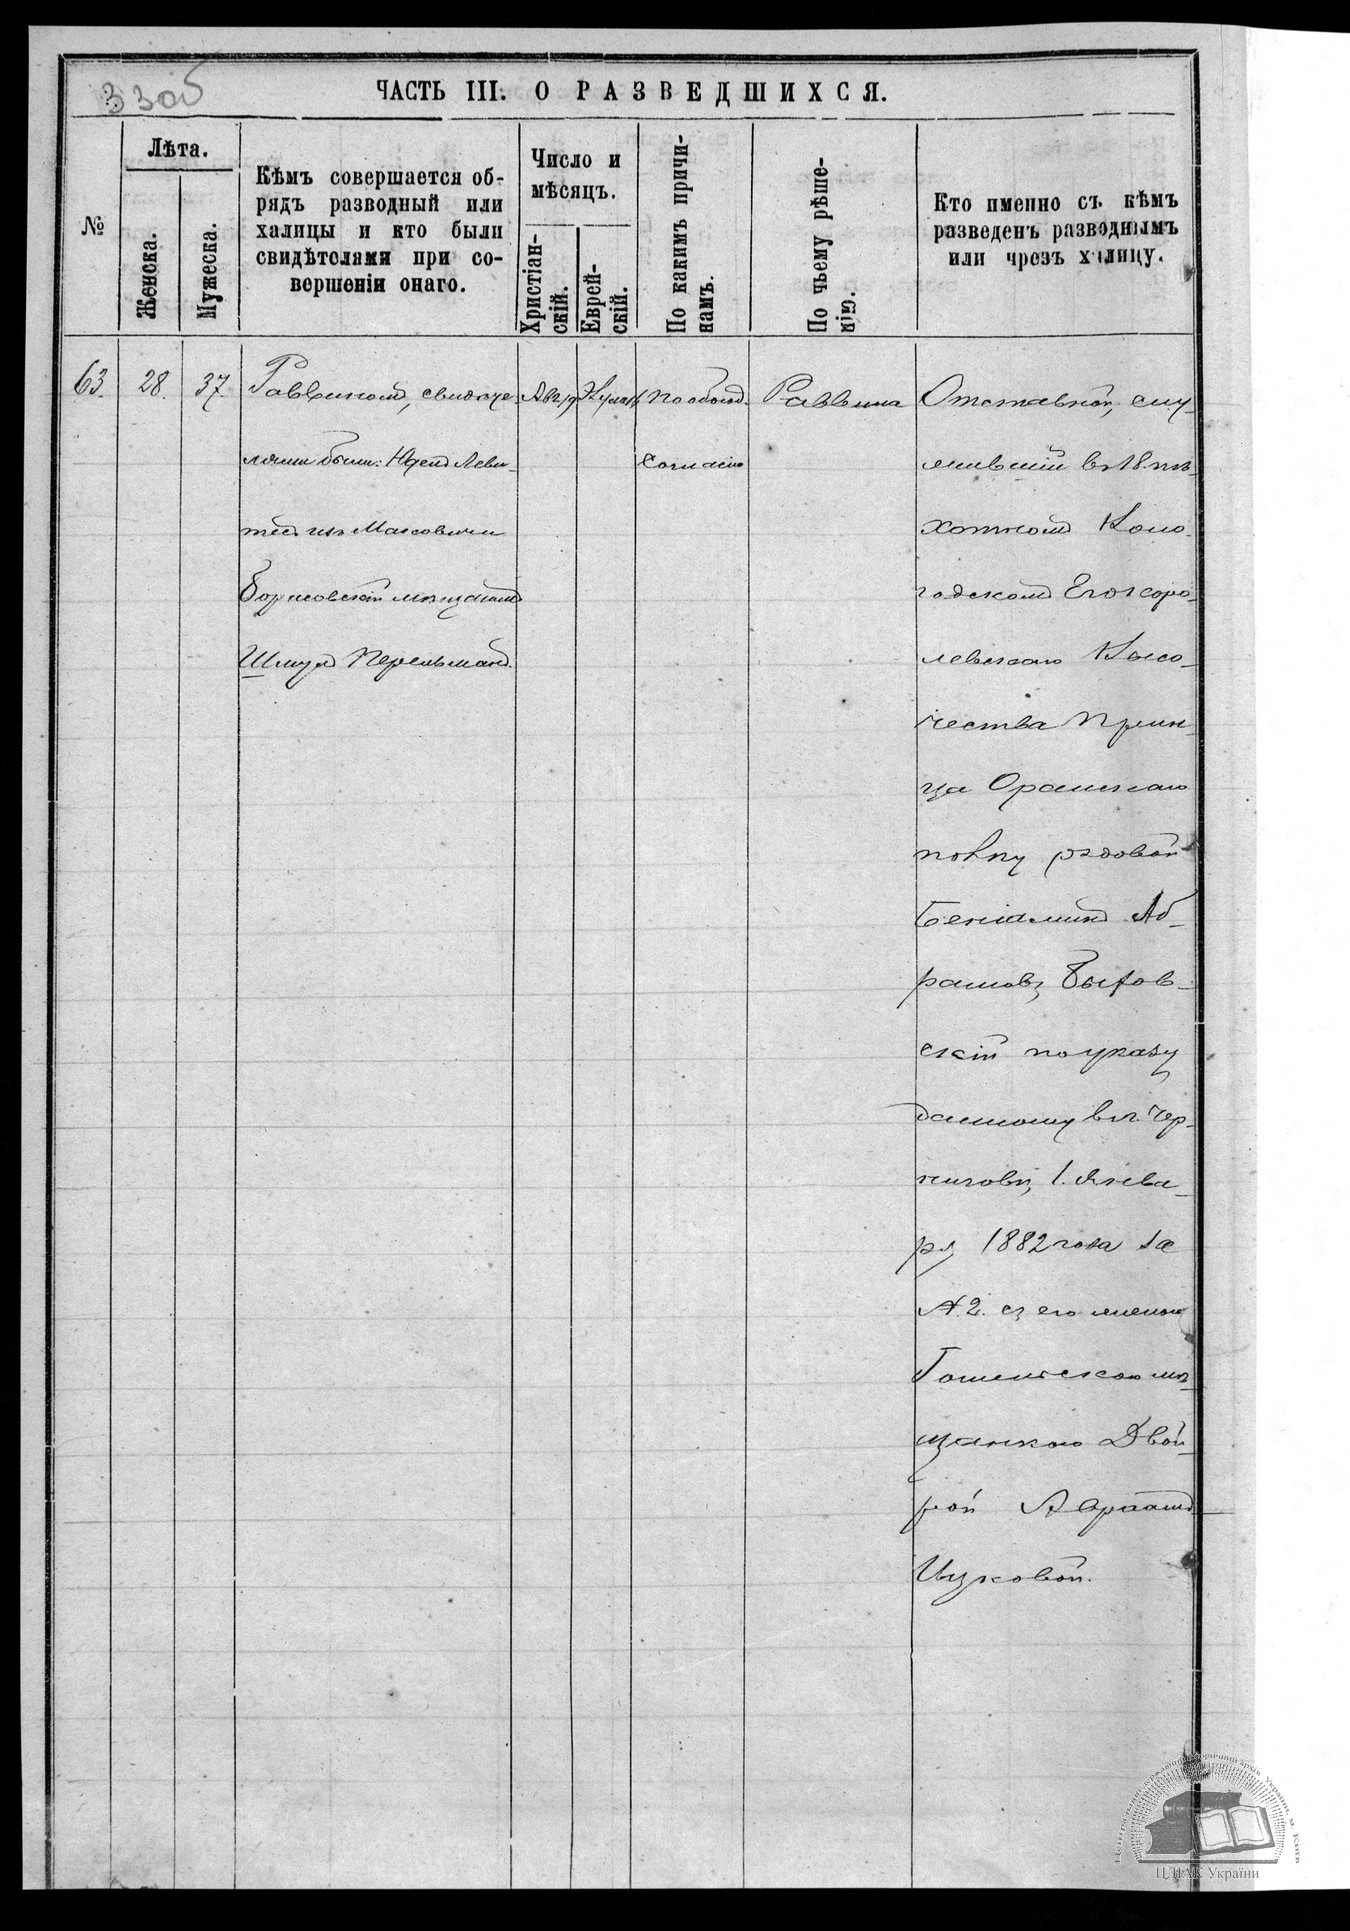 33об
ЧАСТЬ III. О РАЗВЕДШИХСЯ.
№
Лѣта.
Женска.
Мужеска.
Кѣмъ совершается об-
рядъ разводный или
халицы и кто были
свидѣтелями при со-
вершеніи онаго.
Число и
мѣсяцъ.
Христіан-
скій.
Еврей-
скій.
По какимъ причи-
намъ.
По чьему рѣше-
нію.
Кто именно съ кѣмъ
разведенъ разводнымъ
или чрезъ халицу.
63.
28.
37.
Раввиномъ, свидѣте-
лями были:
Борисовскій мѣщанинъ
Шмуль Перельманъ.
По обоюд.
согласію
Раввина
Отставной, слу-
жившій въ 18. пѣ-
хотномъ Воло-
годскомъ Его Коро-
левскаго Высо-
чества Прин-
ца Оранскаго
полку рядовой
Беніаминъ Аб-
рамовъ Быхов-
скій по указу
данному въ г. Чер-
ниговѣ, 1. Янва-
ря 1882 года за
№ 2. съ его женою
мѣ-
щанкою Двой-
рой Авраамъ
Ицковой.
ЦДІАК України